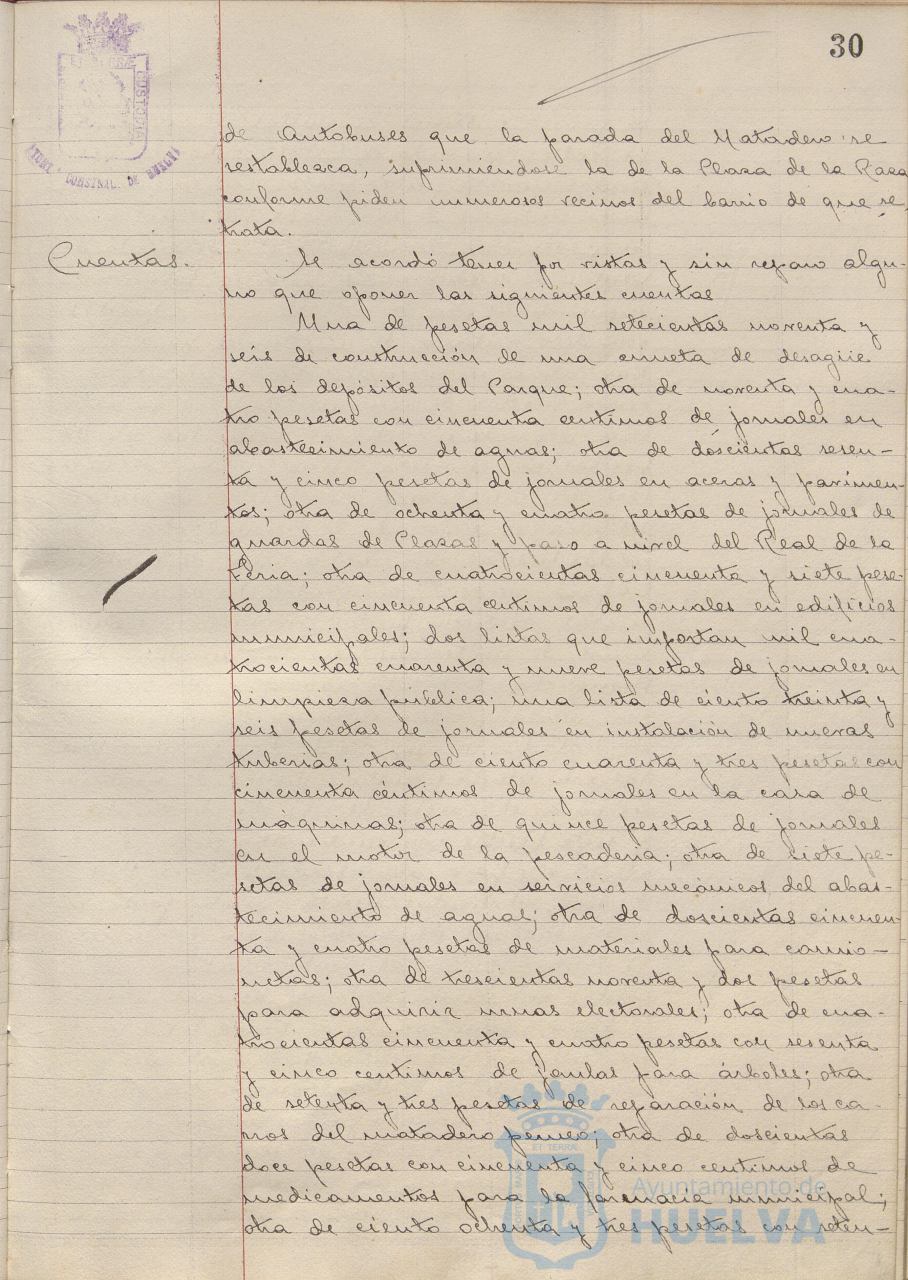 30
ET TERRÆ
CUSTODIA
CONSTNAL. DE HUELVA
de Autobuses que la parada del Matadero se
restablezca, suprimiendose la de la Plaza de la Raza
conforme piden numerosos vecinos del barrio de que se
trata.
Cuentas.
Se acordó tener por vistas y sin reparo algu-
no que oponer las siguientes cuentas
Una de pesetas mil setecientas noventa y
seis de construcción de una cuneta de desagüe
de los depósitos del Parque; otra de noventa y cua-
tro pesetas con cincuenta centimos de jornales en
abastecimiento de aguas; otra de doscientas sesen-
ta y cinco pesetas de jornales en aceras y pavimen-
tos; otra de ochenta y cuatro pesetas de jornales de
guardas de Plazas y paso a nivel del Real de la
Feria; otra de cuatrocientas cincuenta y siete pese-
tas con cincuenta centimos de jornales en edificios
municipales; dos listas que importan mil cua-
trocientas cuarenta y nueve pesetas de jornales en
limpieza pública; una lista de ciento treinta y
seis pesetas de jornales en instalación de nuevas
tuberias; otra de ciento cuarenta y tres pesetas con
cincuenta céntimos de jornales en la casa de
máquinas; otra de quince pesetas de jornales
en el motor de la pescaderia; otra de siete pe-
setas de jornales en servicios mecánicos del abas-
tecimiento de aguas; otra de doscientas cincuen-
ta y cuatro pesetas de materiales para camio-
netas; otra de trescientas noventa y dos pesetas
para adquirir urnas electorales; otra de cua-
trocientas cincuenta y cuatro pesetas con sesenta
y cinco centimos de jaulas para árboles; otra
de setenta y tres pesetas de reparación de los ca-
rros del matadero; otra de doscientas
doce pesetas con cincuenta y cinco centimos de
medicamentos para la farmacia municipal;
otra de ciento ochenta y tres pesetas con seten-
ET TERRÆ
Ayuntamiento de
HUELVA